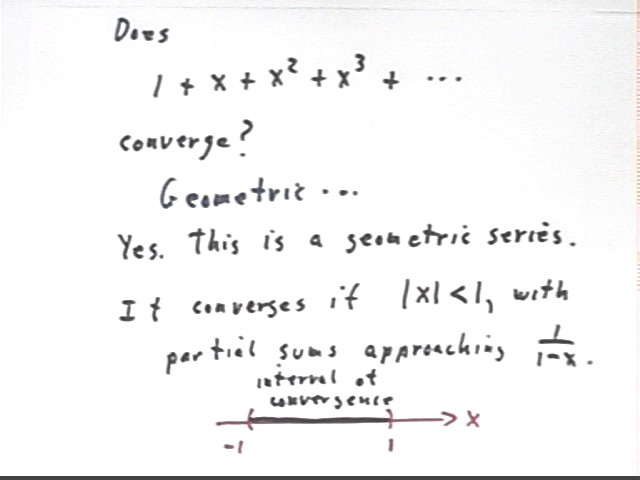 Does
1 + x + x² + x³ + ...
converge?
Geometric ...
Yes. This is a geometric series.
It converges if |x| < 1, with
partial sums approaching 1/(1-x).
interval of
convergence
-1 1 x